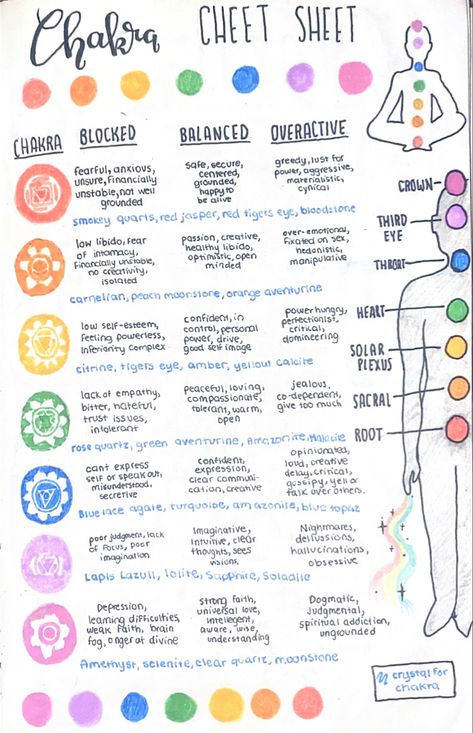 Chakra CHEET SHEET
CHAKRA BLOCKED BALANCED OVERACTIVE
fearful, anxious,
unsure, financially
unstable, not well
grounded
safe, secure,
centered,
grounded,
happy to
be alive
greedy, lust for
power, aggressive,
materialistic,
cynical
smokey quarts, red jasper, red tigers eye, bloodstone
low libido, fear
of intamacy,
financially unstable,
no creativity,
isolated
passion, creative,
healthy libido,
optimistic, open
minded
over-emotional,
fixated on sex,
hedonistic,
manipulative
carnelian, peach moonstone, orange aventurine
low self-esteem,
feeling powerless,
inferiority complex
confident, in
control, personal
power, drive,
good self image
power hungry,
perfectionist,
critical,
domineering
citrine, tigers eye, amber, yellow calcite
lack of empathy,
bitter, hateful,
trust issues,
intolerant
peaceful, loving,
compassionate,
tolerant, warm,
open
jealous,
co-dependent,
give too much
rose quartz, green aventurine, Amazonite,
cant express
self or speak out,
misunderstood,
secretive
confident,
expression,
clear communi-
cation, creative
opinionated,
loud, creative
delay, critical,
gossipy, yell or
talk over others.
Blue lace agate, turquoise, amazonite, blue topaz
poor judgment, lack
of focus, poor
imagination
Imaginative,
intuitive, clear
thoughts, sees
visions.
Nightmares,
delusions,
hallucinations,
obsessive
Lapis Lazuli, Iolite, Sapphire, Sodalile
Depression,
learning difficulties,
weak faith, brain
fog, anger at divine
strong faith,
universal love,
intellegent,
aware, wise,
understanding
Dogmatic,
Judgmental,
spiritual addiction,
ungrounded
Amethyst, selenite, clear quartz, moonstone
CROWN
THIRD
EYE
THROAT
HEART
SOLAR
PLEXUS
SACRAL
ROOT
crystal for
chakra